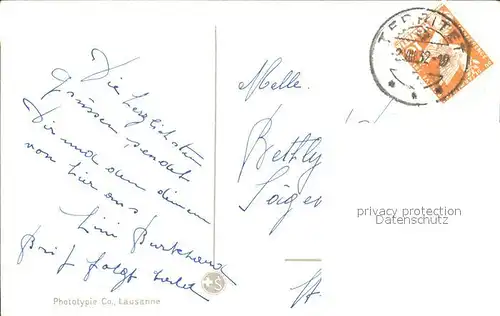 Die herzlichsten
Grüssen sendet
Dir und den deinen
von hier aus!
Lini Burkhard
Brief folgt bald
Melle.
Bethly
TERRITET
privacy protection
Datenschutz
+S
Phototypie Co., Lausanne